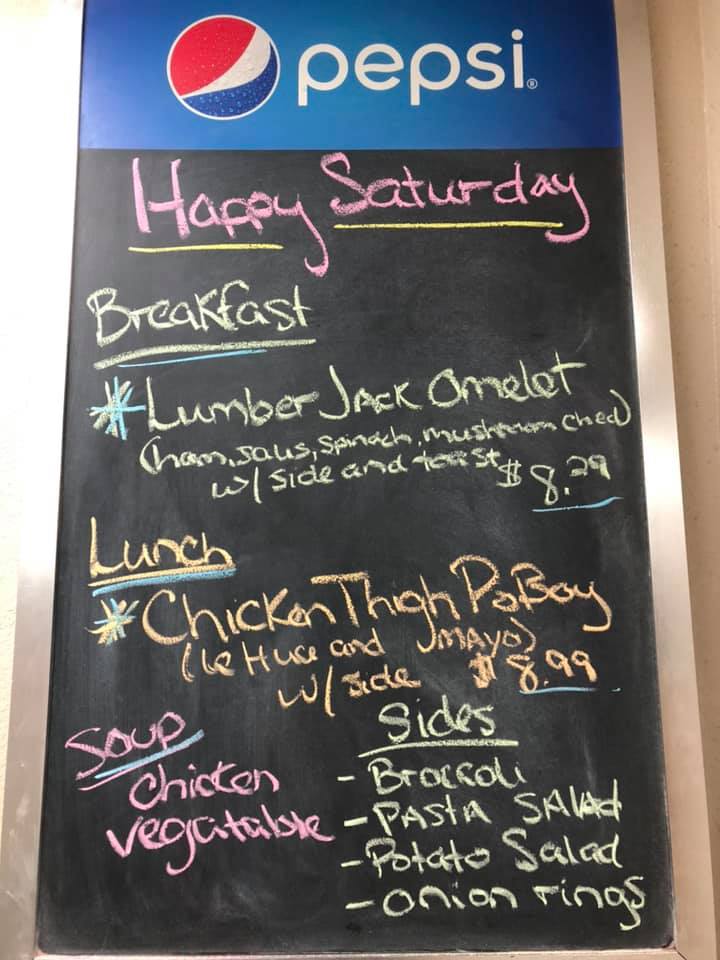 pepsi®
Happy Saturday
Breakfast
* Lumber Jack Omelet
(ham, saus, spinach, mushroom ched)
w/ side and toast $8.29
Lunch
* Chicken Thigh PoBoy
(lettuce and mayo)
w/ side $8.99
Soup
Chicken
vegatable
Sides
- Broccoli
- PASTA SALAd
- Potato Salad
- onion rings